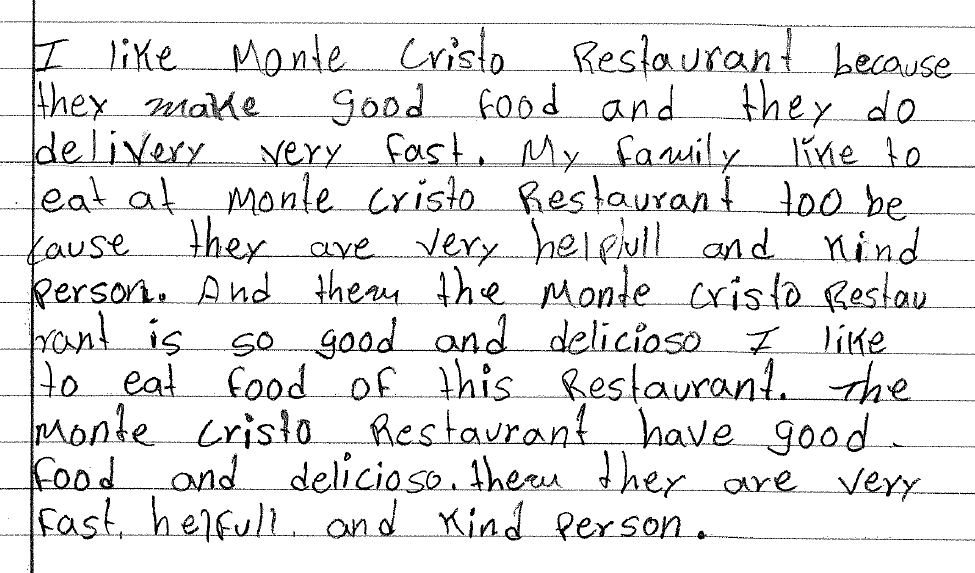 I like Monte Cristo Restaurant because
they make good food and they do
delivery very fast. My family like to
eat at Monte Cristo Restaurant too be
cause they are very helpfull and kind
person. And then the Monte Cristo Restau
rant is so good and delicioso I like
to eat food of this Restaurant. The
Monte Cristo Restaurant have good
food and delicioso. then they are very
fast, helfull, and kind person.